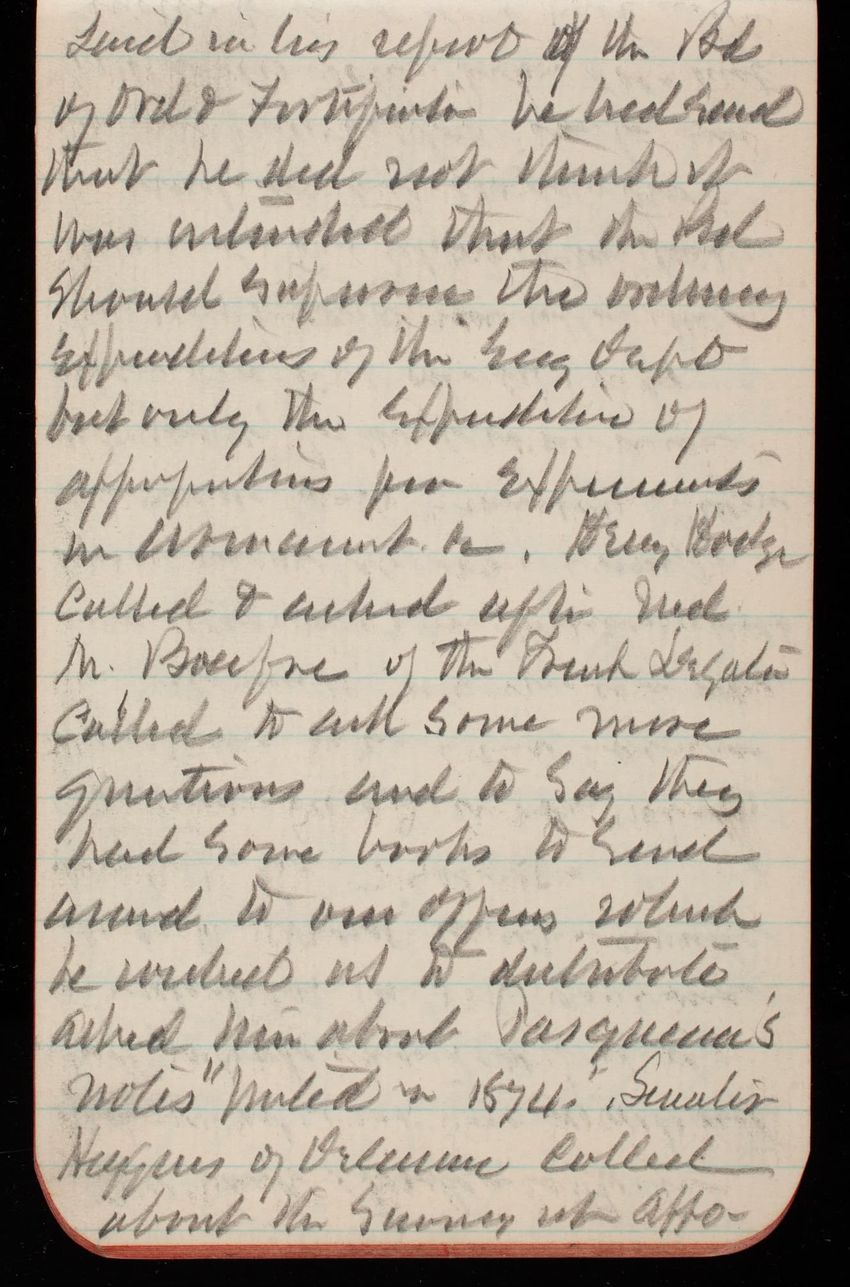 Said in his report of the Bd
of Ord & Fortification he had said
that he did not think it
was intended that the Bd
should supervise the ordinary
expenditures of the Eng Dept
but only the expenditure of
appropriations for experiments
in armament &c. Henry Hodge
called & asked after Ned
M. of the French Legation
Called to ask some more
questions and to say they
had some books to send
around to our offices which
he wished us to distribute
asked him about Pasqueau's
Notes" printed in 1874. Senator
Higgins of Delaware called
about the Survey at Appo-